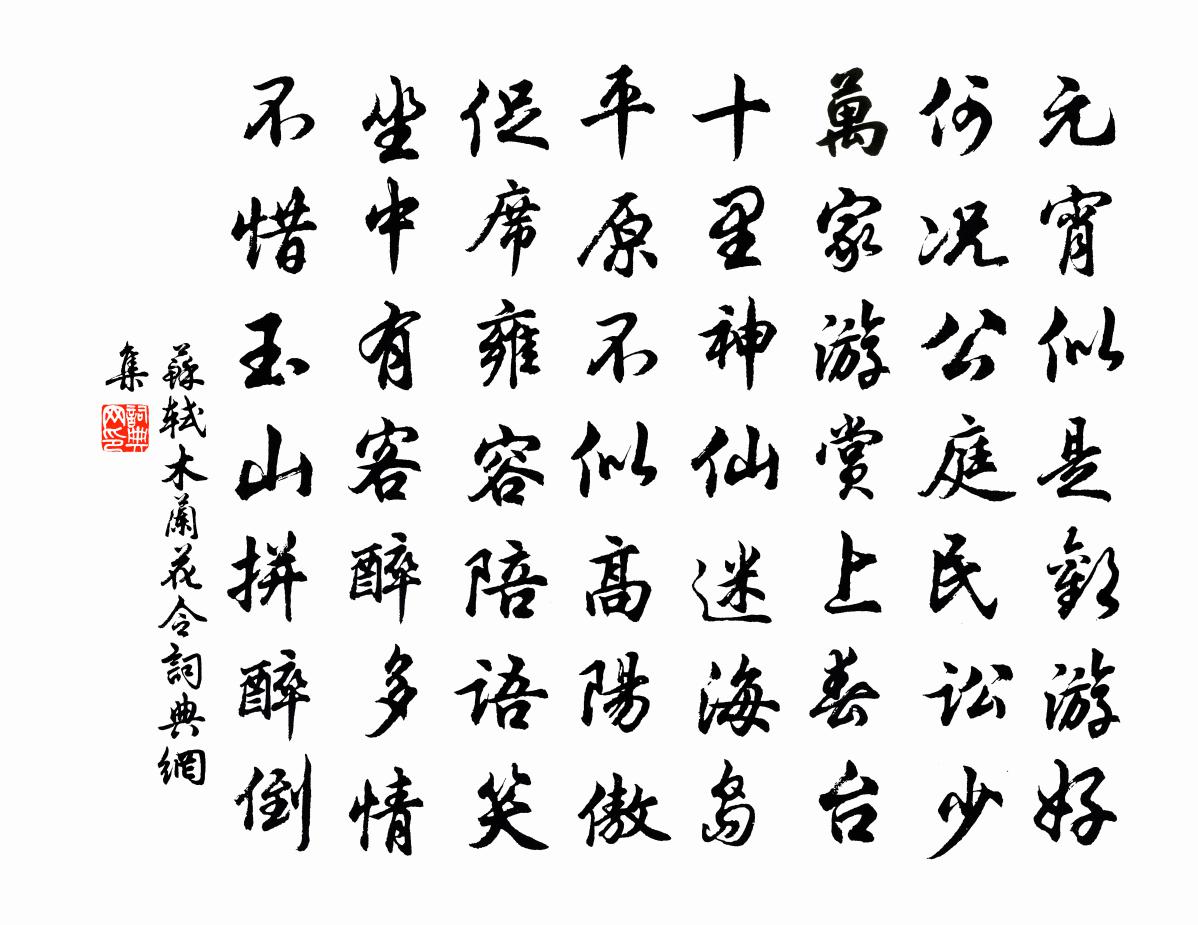 元宵似是歡游好
何况公庭民訟少
萬家游賞上春台
十里神仙迷海島
平原不似高陽傲
促席雍容陪語笑
坐中有客醉多情
不惜玉山拼醉倒
蘇軾木蘭花令詞典網
集
詞典网印